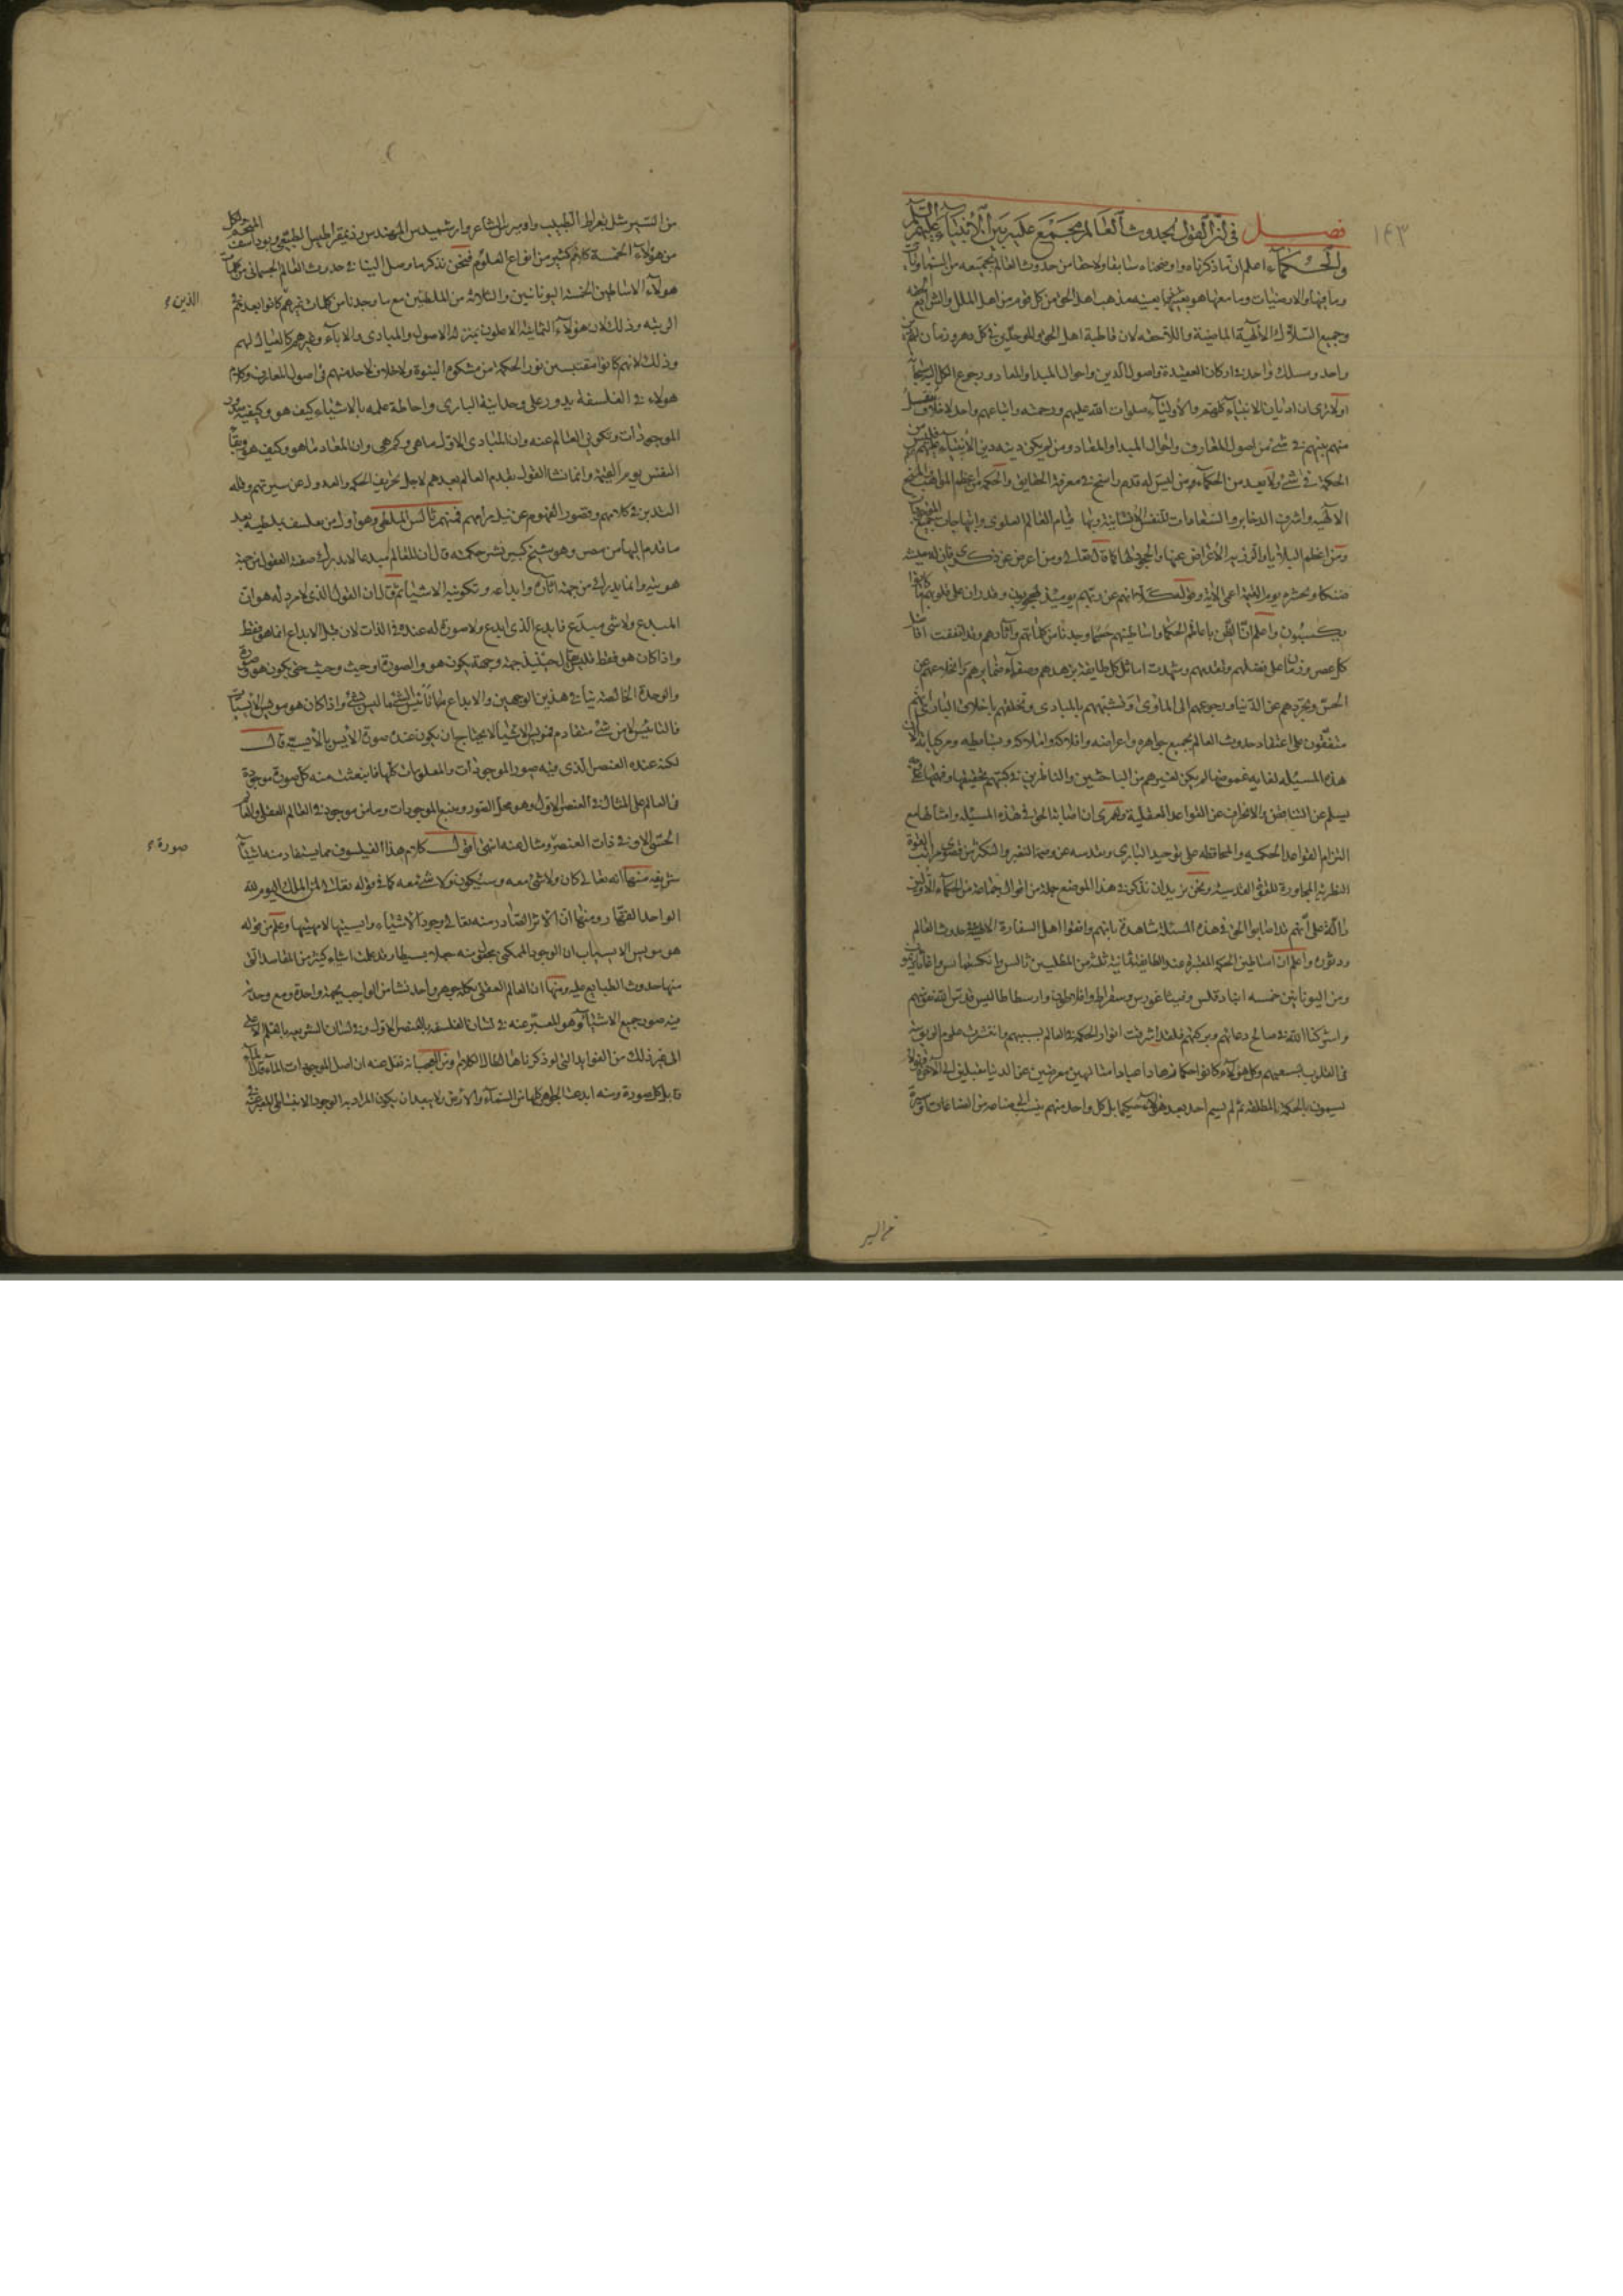 ١٤٣
فصل في أن القول بحدوث العالم مجتمع عليه بين الأنبياء عليهم السلم
والحكماء اعلم ان ما ذكرناه واوضحناه سابقا ولاحقا من حدوث العالم بجميعه من السموات
وما فيها والارضيات وما معها هو بعينه مذهب اهل الحق من كل قوم من اهل الملل والشرايع الحقه
وجميع السلاك الالهية الماضية واللاحقه لان قاطبة اهل الحق والموحدين في كل دهر وزمان لهم دين
واحد ومسلك واحد في اركان العقيدة واصول الدين واحوال المبدا والمعاد ورجوع الكل اليه سبحانه
اولا ترى ان اديان الانبياء كلهم والأولياء صلوات الله عليهم ورحمته واتباعهم واحد لا خلاف ينقل
منهم بينهم في شئ من اصول المعارف واحوال المبدا والمعاد ومن لم يكن دينه دين الأنبياء عليهم فليس من
الحكمة في شئ ولا يعد من الحكماء ومن ليس له قدم راسخ في معرفة الحقايق والحكمة من اعظم المواهب والمنح
الالهيه واشرف الدخاير والسعادات للنفس الانسانية وبها قيام العالم العلوى وابتهاجات جميع الموجودات
ومن اعظم البلايا والرزيه الأعراض عنها والجحود لها كما قال تعالى ومن اعرض عن ذكرى فان له معيشة
ضنكا ونحشره يوم القيمة اعمى الآية وقوله كلا انهم عن ربهم يومئذ لمحجوبون وقد ران على قلوبهم ما كانوا
يكسبون واعلم انا لحسن الظن باعاظم الحكماء واساطينهم حسبما وجدنا من كلماتهم وآثارهم وقد اتفقت افاضل
كل عصر وزمان على فضلهم وتقدمهم وشهدت اماثل كل طايفة بزهدهم وصفاء ضمايرهم وانخلاعهم عن
الحس وتجردهم عن الدنيا ورجوعهم الى الماوى وتشبههم بالمبادى وتخلقهم باخلاق البارى انهم
متفقون على اعتقاد حدوث العالم بجميع جواهره واعراضه وافلاكه واملاكه وبسايطه ومركباته الا ان
هذه المسئله لغايه غموضها لم يمكن لغيرهم من الباحثين والناظرين في كتبهم تحقيقها وفهمها على وجه
يسلم عن التناقض والانحراف عن القواعد العقلية ولعمرى ان اصابة الحق في هذه المسئله وامثالها مع
التزام القواعد الحكميه والمحافظه على توحيد البارى وتقدسه عن وصمة التغير والتكثر من قصوى مراتب القوة
النظرية المجاورة للقوة القدسيه ونحن نريد ان نذكر في هذا الموضع جملة من اقوال جماعة من الحكماء الأولين
دالة على أنهم قد اصابوا الحق في هذه المسئله شاهدة بانهم وافقوا اهل السفارة الالهية في حدوث العالم
ودثوره واعلم ان اساطين الحكمه المعتبره عند الطايفة ثمانية ثلثة من الملطيين ثالس وانكسيمانس واغاثاذيمون
ومن اليونانيين خمسه انباذقلس وفيثاغورس وسقراط وافلاطون وارسطاطاليس قدس الله نفوسهم
واشركنا الله في صالح دعائهم وبركتهم فلقد اشرقت انوار الحكمة في العالم بسببهم وانتشرت علوم الربوبية
في القلوب بسعيهم وكل هؤلاء كانوا حكما زهادا عبادا متالهين معرضين عن الدنيا مقبلين الى الآخره فهؤلاء
يسمون بالحكمة المطلقه ثم لم يسم احد بعد هؤلاء حكيما بل كل واحد منهم ينسب الى صناعه من الصناعات او سيرة
من السير
من السير مثل بقراط الطبيب واوميرس الشاعر وارشميدس المهندس وذيمقراطيس الطبيعى ويوذاسف المنجم ولكل
من هؤلاء الخمسة كلام كثير من انواع العلوم فنحن نذكر ما وصل الينا في حدوث العالم الجسمانى من كلمات
هولآء الاساطين الخمسة اليونانيين والثلاثه من الملطيين مع ما وجدنا من كلمات غيرهم كانوا بعدهم في
الذين
الرتبه وذلك لان هؤلاء الثمانية الاعلون بمنزلة الاصول والمبادى والاباء وغيرهم كالعيال لهم
وذلك لانهم كانوا مقتبسين نور الحكمه من مشكوة النبوة ولا خلاف لاحد منهم في اصول المعارف وكلام
هولاء في الفلسفة يدور على وحدانية البارى واحاطة علمه بالاشياء كيف هو وكيفية صدور
الموجودات وتكوين العالم عنه وان المبادى الاول ما هى وكم هى وان المعاد ما هو وكيف هو وبقاء
النفس يوم القيمة وانما نشا القول بقدم العالم بعدهم لاجل تحريف الحكمه والعدول عن سيرتهم وقلة
التدبر في كلامهم وقصور الفهوم عن نيل مرامهم فمنهم ثالس الملطى وهو اول من تفلسف بملطيه بعد
ما قدم اليها من مصر وهو شيخ كبير نشر حكمته قال ان للعالم مبدعا لا يدرك صفته العقول من جهة
هويته وانما يدرك من جهة آثاره وابداعه وتكوينه الاشياء ثم قال ان القول الذى لا مرد له هو ان
المبدع ولا شئ مبدع فابدع الذى ابدع ولا صورة له عنده في الذات لان قبل الابداع انما هو فقط
واذا كان هو فقط فليس يقال حينئذ جهة وجهة يكون هو والصورة او حيث وحيث حتى يكون هو وصورة
والوحدة الخالصة ينافي هذين الوجهين والابداع هو تأييس الشئ ما ليس بشئ واذا كان هو مؤيس الأيسيات
فالتأييس لا من شئ متقادم فمؤيس الاشياء لا يحتاج ان يكون عنده صورة الأيس بالأيسية قال
لكنه عنده العنصر الذى فيه صور الموجودات والمعلومات كلها فانبعث منه كل صورة موجودة
في العالم على المثال في العنصر الاول وهو محل الصور ومنبع الموجودات وما من موجود في العالم العقلى والعالم
الحسى الا وفي ذات العنصر ومثال عنه انتهى اقول كلام هذا الفيلسوف مما يستفاد منه اشياء
صورة
شريفه منها انه تعالى كان ولا شئ معه وسيكون ولا شئ معه كما في قوله تعالى لمن الملك اليوم لله
الواحد القهار ومنها ان الاثر الصادر منه تعالى وجود الاشياء وايسيتها لا مهيتها وعلم من قوله
هو مؤيس الايسيات ان الوجود الممكنى مجعول منه جعلا بسيطا وقد علمت ابتناء كثير من المقاصد التى
منها حدوث الطبايع عليه ومنها ان العالم العقلى بكله جوهر واحد نشا من الواجب بجهة واحدة ومع وحدته
فيه صور جميع الاشياء وهو المعبر عنه في لسان الفلسفة بالعنصر الاول وفي لسان الشريعه بالقلم الاعلى
الى غير ذلك من الفوايد التى لو ذكرناها لطال الكلام ومن العجب انه نقل عنه ان اصل الموجودات الماء قال الماء
قابل كل صورة ومنه ابدعت الجواهر كلها من السماء والأرض ولا يبعد ان يكون المراد به الوجود الانبساطى المعبر عنه في